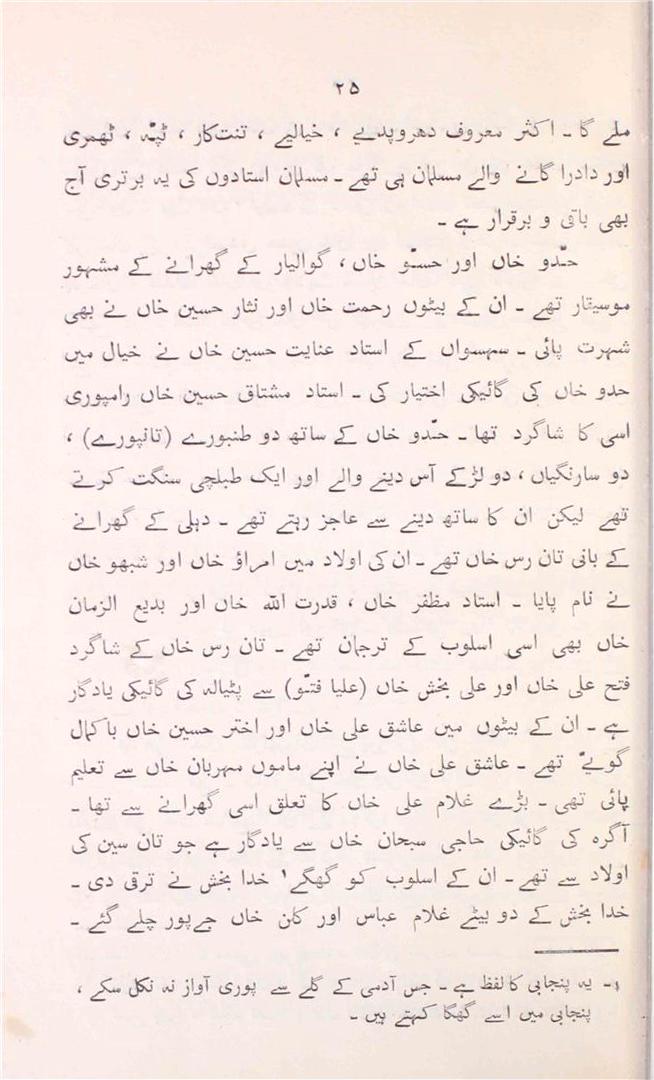 ۲۵
ملے گا ۔ اکثر معروف دھروپدیے ، خیالیے ، تنت‌کار ، ٹپّہ ، ٹھمری
اور دادرا گانے والے مسلمان ہی تھے ۔ مسلمان استادوں کی یہ برتری آج
بھی باقی و برقرار ہے ۔
حدّو خاں اور حسّو خاں ، گوالیار کے گھرانے کے مشہور
موسیقار تھے ۔ ان کے بیٹوں رحمت خاں اور نثار حسین خاں نے بھی
شہرت پائی ۔ سہسواں کے استاد عنایت حسین خاں نے خیال میں
حدو خاں کی گائیکی اختیار کی ۔ استاد مشتاق حسین خاں رامپوری
اسی کا شاگرد تھا ۔ حدّو خاں کے ساتھ دو طنبورے (تانپورے) ،
دو سارنگیاں ، دو لڑکے آس دینے والے اور ایک طبلچی سنگت کرتے
تھے لیکن ان کا ساتھ دینے سے عاجز رہتے تھے ۔ دہلی کے گھرانے
کے بانی تان رس خاں تھے ۔ ان کی اولاد میں امراؤ خاں اور شبھو خاں
نے نام پایا ۔ استاد مظفر خاں ، قدرت اللہ خاں اور بدیع الزمان
خاں بھی اسی اسلوب کے ترجمان تھے ۔ تان رس خاں کے شاگرد
فتح علی خاں اور علی بخش خاں (علیا فتّو) سے پٹیالہ کی گائیکی یادگار
ہے ۔ ان کے بیٹوں میں عاشق علی خاں اور اختر حسین خاں باکمال
گویّے تھے ۔ عاشق علی خاں نے اپنے ماموں مہربان خاں سے تعلیم
پائی تھی ۔ بڑے غلام علی خاں کا تعلق اسی گھرانے سے تھا ۔
آگرہ کی گائیکی حاجی سبحان خاں سے یادگار ہے جو تان سین کی
اولاد سے تھے ۔ ان کے اسلوب کو گھگے۱ خدا بخش نے ترقی دی ۔
خدا بخش کے دو بیٹے غلام عباس اور کلن خاں جے‌پور چلے گئے ۔
۱۔ یہ پنجابی کا لفظ ہے ۔ جس آدمی کے گلے سے پوری آواز نہ نکل سکے ،
پنجابی میں اسے گھگا کہتے ہیں ۔